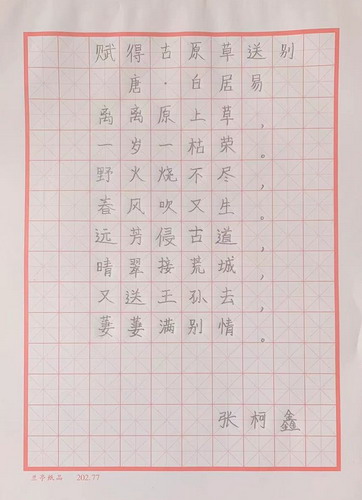 赋得古原草送别
唐·白居易
离离原上草，
一岁一枯荣。
野火烧不尽，
春风吹又生。
远芳侵古道，
晴翠接荒城，
又送王孙去，
萋萋满别情。
张柯鑫
京亭纸品 202.77